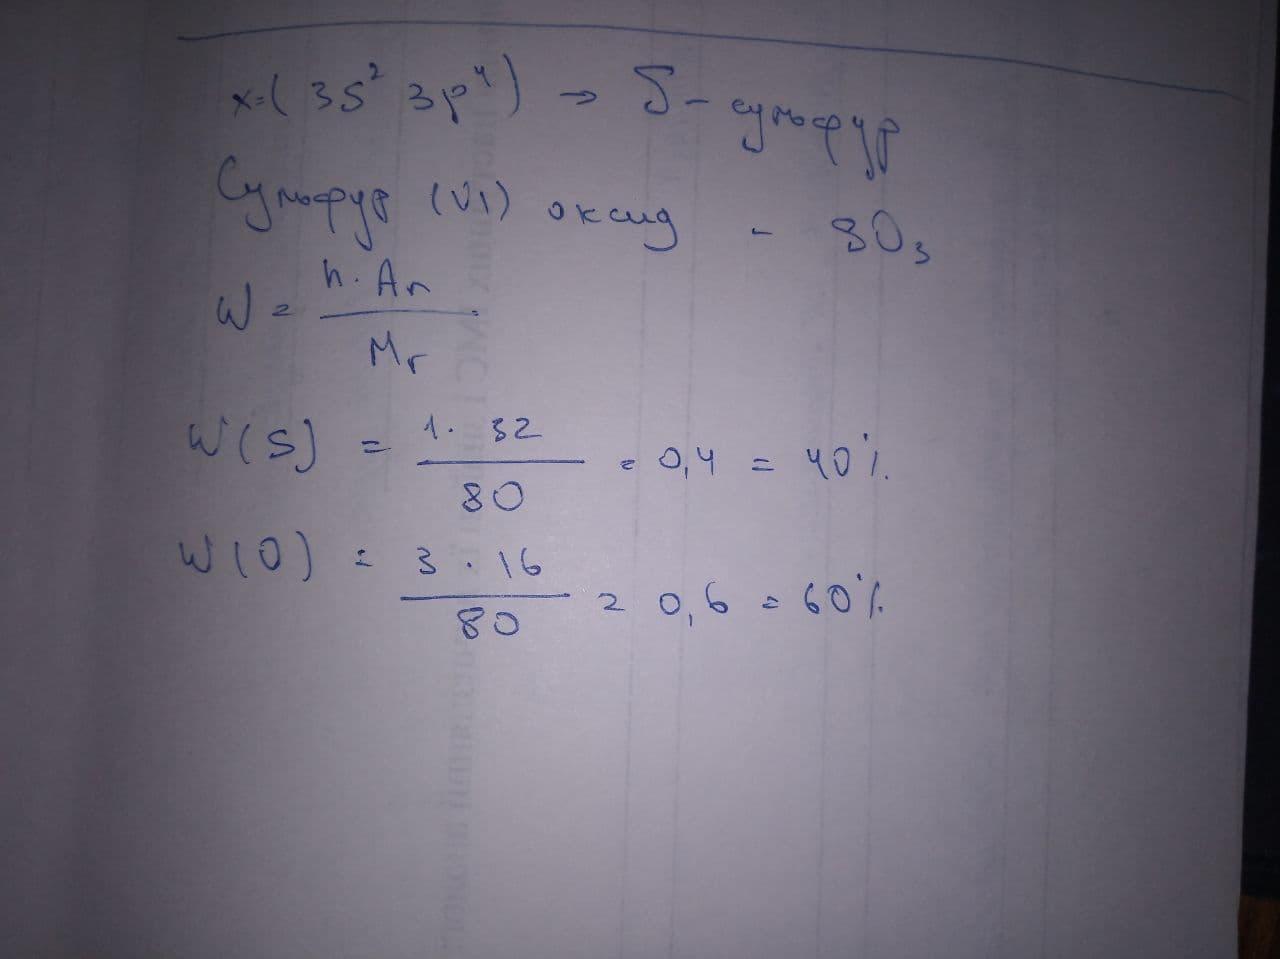 x=(3s² 3p⁴) → S - сульфур
Сульфур (VI) оксид - SO₃
W = n·Ar / Mr
W(S) = 1·32 / 80 = 0,4 = 40%
W(O) = 3·16 / 80 = 0,6 = 60%